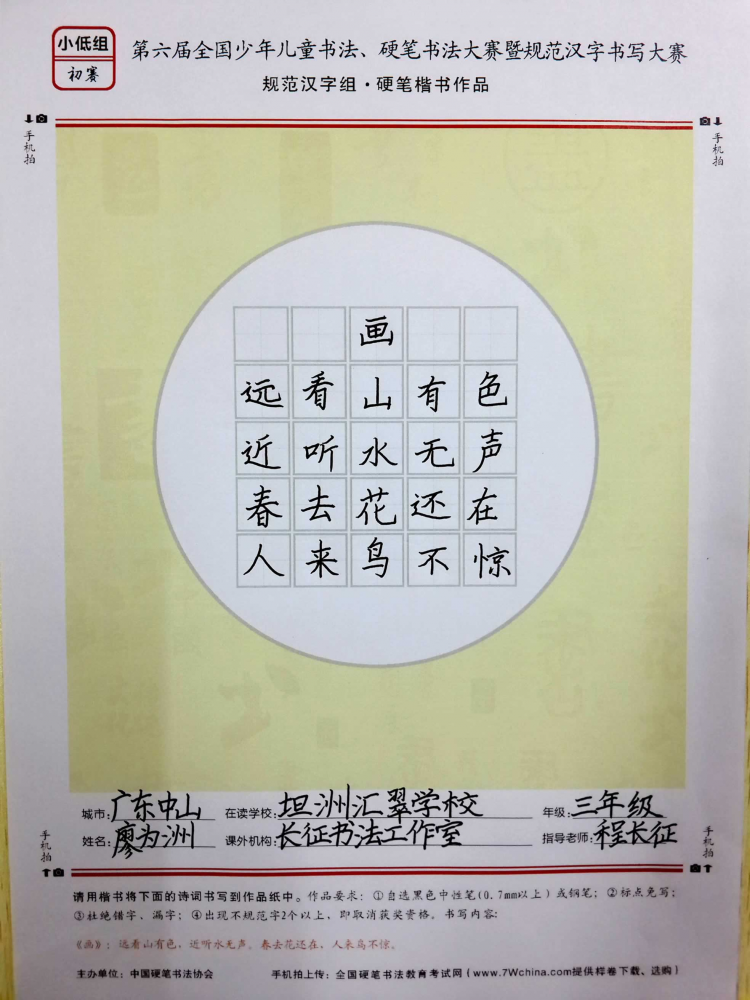 小低组
初赛
第六届全国少年儿童书法、硬笔书法大赛暨规范汉字书写大赛
规范汉字组·硬笔楷书作品
手机拍
手机拍
画
远看山有色
近听水无声
春去花还在
人来鸟不惊
城市:广东中山 在读学校:坦洲汇翠学校 年级:三年级
姓名:廖为洲 课外机构:长征书法工作室 指导老师:程长征
手机拍
手机拍
请用楷书将下面的诗词书写到作品纸中。作品要求:①自选黑色中性笔(0.7mm以上)或钢笔;②标点免写;
③杜绝错字、漏字;④出现不规范字2个以上,即取消获奖资格。书写内容:
《画》:远看山有色,近听水无声。春去花还在,人来鸟不惊。
主办单位:中国硬笔书法协会 手机拍上传:全国硬笔书法教育考试网(www.7Wchina.com提供样卷下载、选购)